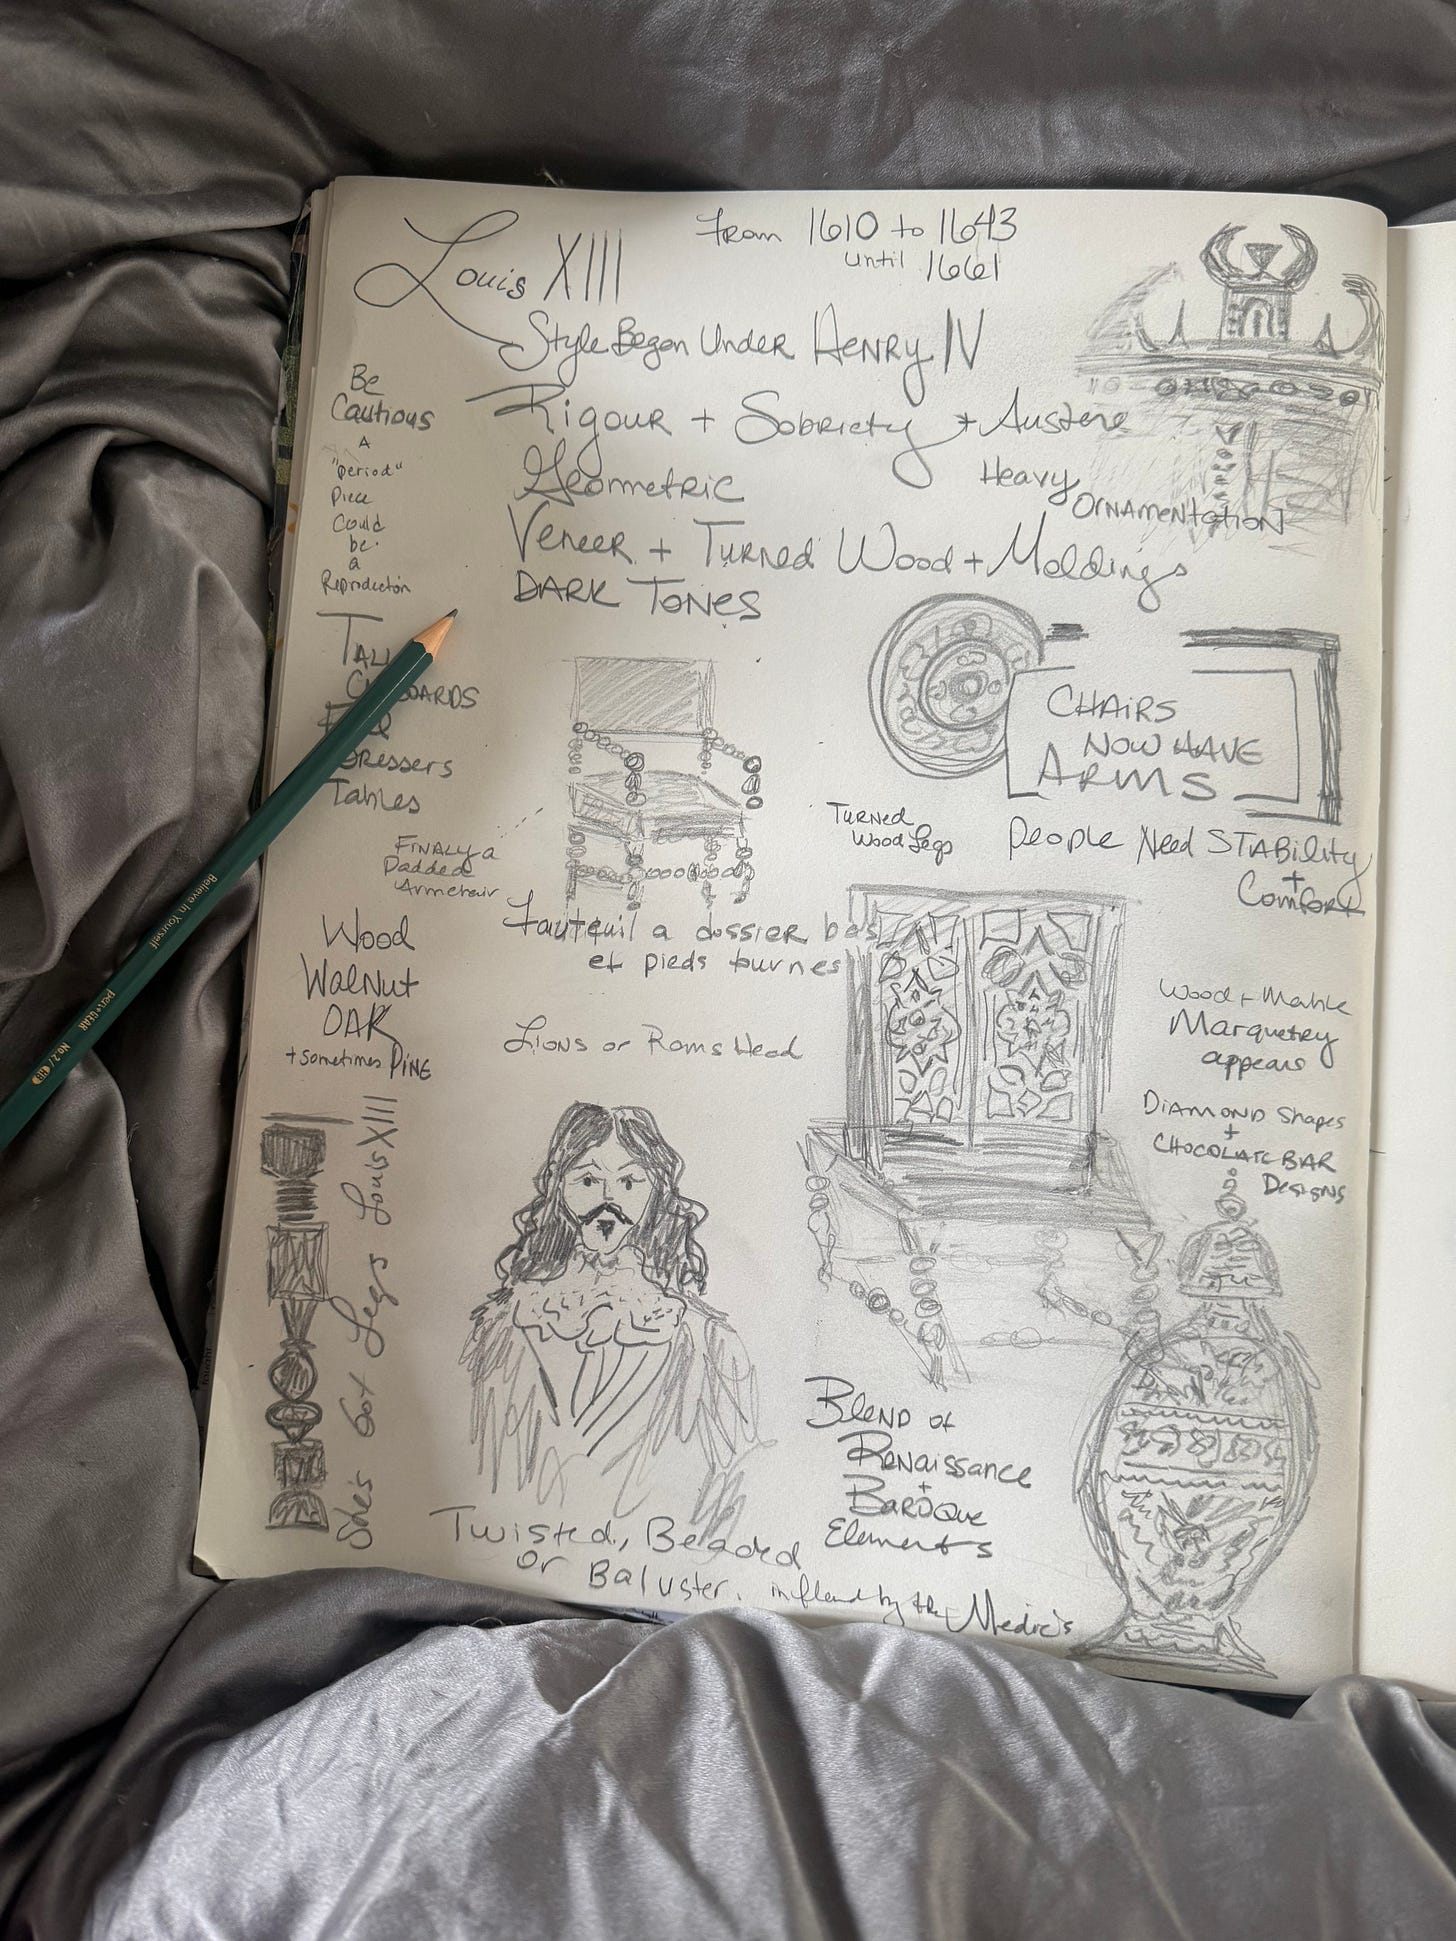 Louis XIII
From 1610 to 1643
until 1661
Style Began Under Henry IV
Be
Cautious
A
"period"
piece
Could
be
a
Reproduction
Rigour + Sobriety + Austere
Geometric
Heavy
Ornamentation
Veneer + Turned Wood + Moldings
DARK TONES
Tall
Dressers
Tables
CHAIRS
NOW HAVE
ARMS
Turned
Wood Legs
People Need STABility
+
Comfort
Finally a
Padded
Armchair
fauteuil a dossier bas
et pieds turnes
Wood
Walnut
OAK
+ sometimes PINE
Lions or Rams Head
Wood + Marble
Marquetry
appears
DIAMOND Shapes
+
CHOCOLATE BAR
Designs
She's Got Legs Louis XIII
Blend of
Renaissance
+
Baroque
Elements
Twisted, Beaded
or Baluster. by the Medicis
Believe In Yourself
pen+GEAR No.2/HB